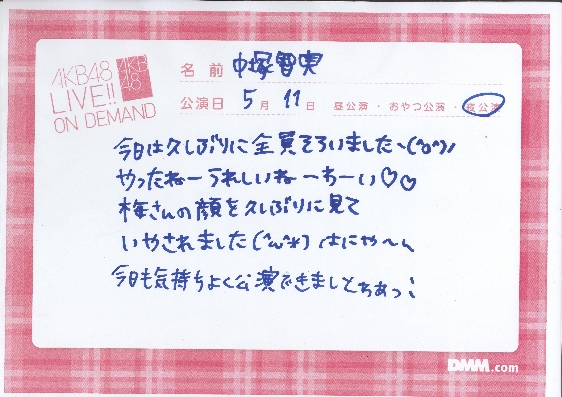 AKB48
LIVE!!
ON DEMAND
AKB
48
名前 中塚智実
公演日 5月11日 昼公演・おやつ公演・夜公演
今日は久しぶりに全員そろいました〜(^o^)ノ
やったねーうれしいねーちーい♡♡
梅さんの顔を久しぶりに見て
いやされました(^ω^*) はにゃ〜ん
今日も気持ちよく公演できましたぁあっ!
DMM.com